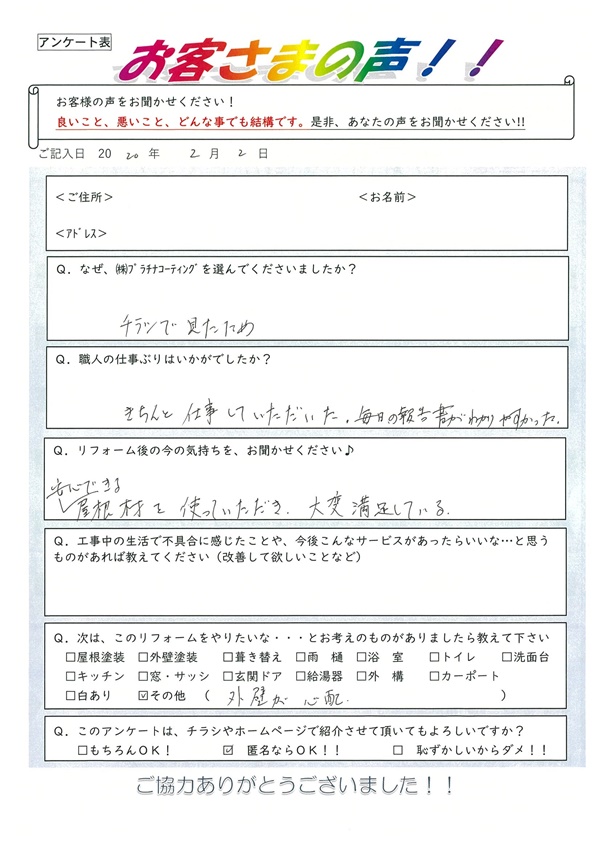 アンケート表
お客さまの声！！
お客様の声をお聞かせください！
良いこと、悪いこと、どんな事でも結構です。是非、あなたの声をお聞かせください!!
ご記入日 2020年 2月 2日
＜ご住所＞ ＜お名前＞
＜ｱﾄﾞﾚｽ＞
Q．なぜ、㈱ﾌﾟﾗﾁﾅｺｰﾃｨﾝｸﾞを選んでくださいましたか？
チラシで見たため
Q．職人の仕事ぶりはいかがでしたか？
きちんと仕事していただいた。毎日の報告書がわかりやすかった。
Q．リフォーム後の今の気持ちを、お聞かせください♪
安心できる
屋根材を使っていただき、大変満足している。
Q．工事中の生活で不具合に感じたことや、今後こんなサービスがあったらいいな…と思う
ものがあれば教えてください（改善して欲しいことなど）
Q．次は、このリフォームをやりたいな・・・とお考えのものがありましたら教えて下さい
□屋根塗装 □外壁塗装 □葺き替え □雨 樋 □浴 室 □トイレ □洗面台
□キッチン □窓・サッシ □玄関ドア □給湯器 □外 構 □カーポート
□白あり ☑その他 （ 外壁が心配。 ）
Q．このアンケートは、チラシやホームページで紹介させて頂いてもよろしいですか？
□もちろんOK！ ☑ 匿名ならOK！！ □ 恥ずかしいからダメ！！
ご協力ありがとうございました！！